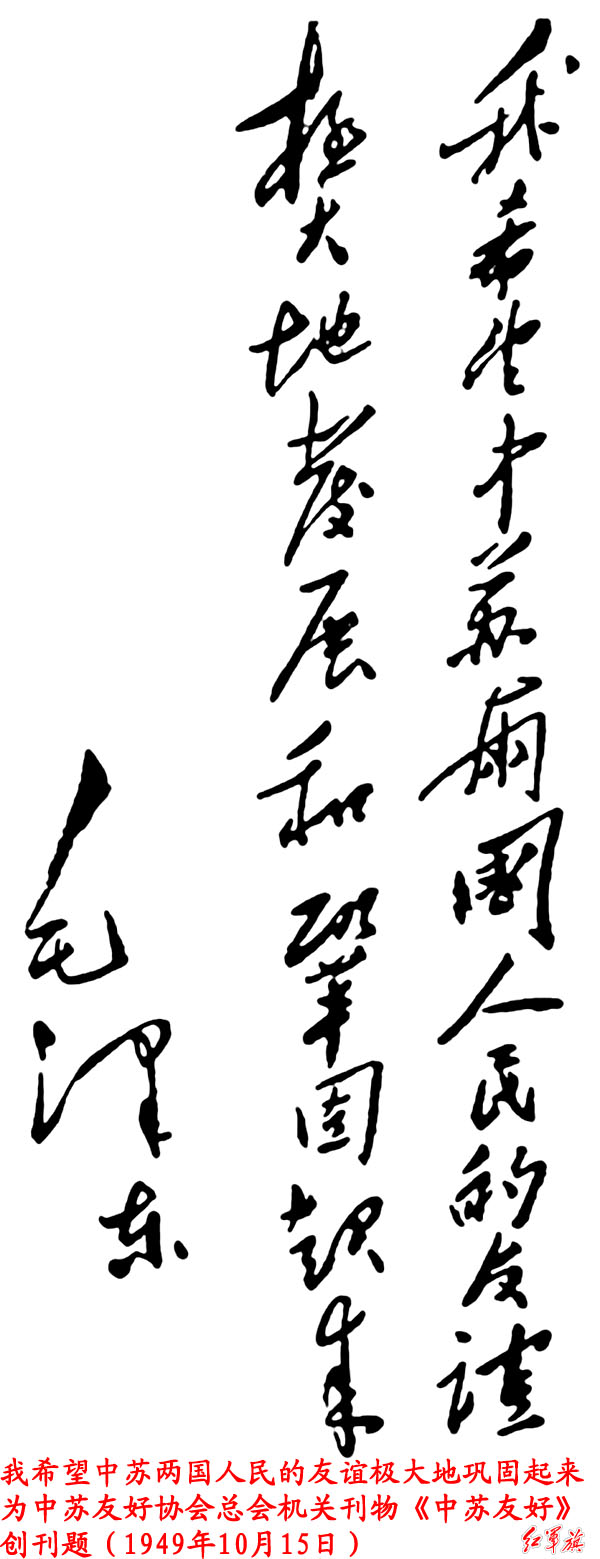 我希望中苏兩國人民的友谊
極大地發展和鞏固起来
毛澤东
我希望中苏两国人民的友谊极大地巩固起来
为中苏友好协会总会机关刊物《中苏友好》
创刊题（1949年10月15日）
红军旗